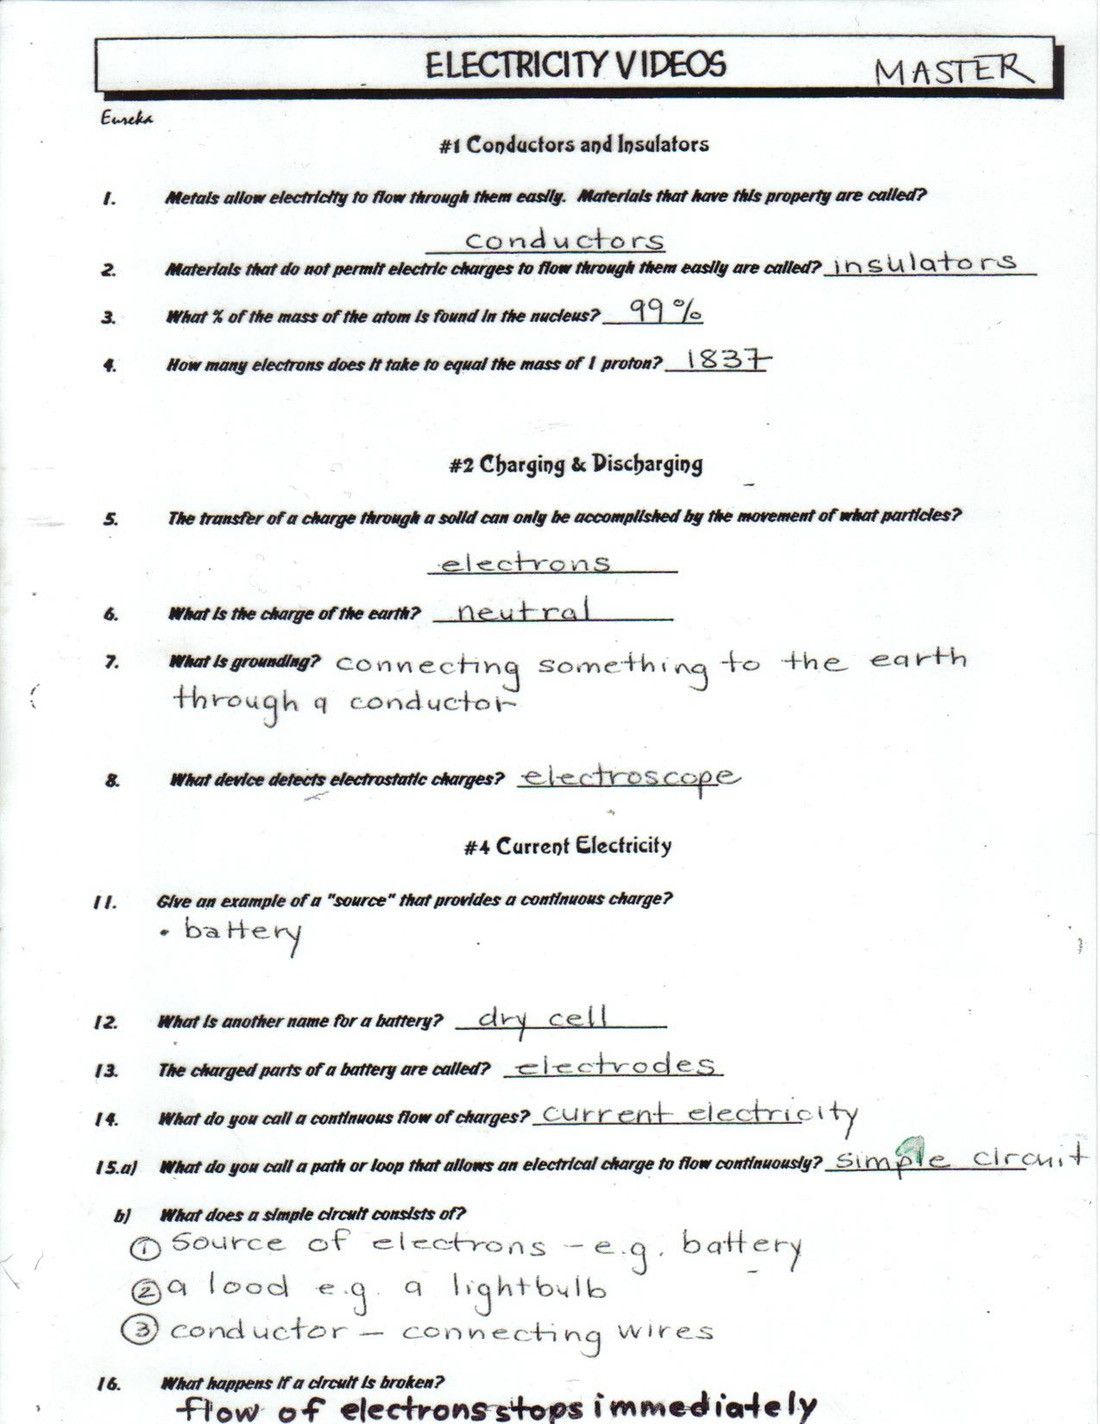 ELECTRICITY VIDEOS MASTER
Eureka
#1 Conductors and Insulators
1. Metals allow electricity to flow through them easily. Materials that have this property are called?
conductors
2. Materials that do not permit electric charges to flow through them easily are called? insulators
3. What % of the mass of the atom is found in the nucleus? 99%
4. How many electrons does it take to equal the mass of 1 proton? 1837
#2 Charging & Discharging
5. The transfer of a charge through a solid can only be accomplished by the movement of what particles?
electrons
6. What is the charge of the earth? neutral
7. What is grounding? connecting something to the earth
through a conductor
8. What device detects electrostatic charges? electroscope
#4 Current Electricity
11. Give an example of a "source" that provides a continuous charge?
• battery
12. What is another name for a battery? dry cell
13. The charged parts of a battery are called? electrodes
14. What do you call a continuous flow of charges? current electricity
15.a) What do you call a path or loop that allows an electrical charge to flow continuously? simple circuit
b) What does a simple circuit consists of?
① source of electrons - e.g. battery
② a load e.g. a lightbulb
③ conductor - connecting wires
16. What happens if a circuit is broken?
flow of electrons stops immediately